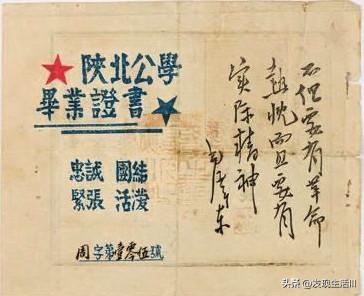 陝北公學
畢業證書
忠誠 團結
緊張 活潑
周字第壹零伍號
不但要有革命
熱忱而且要有
实际精神
毛澤东
头条 @发现生活III